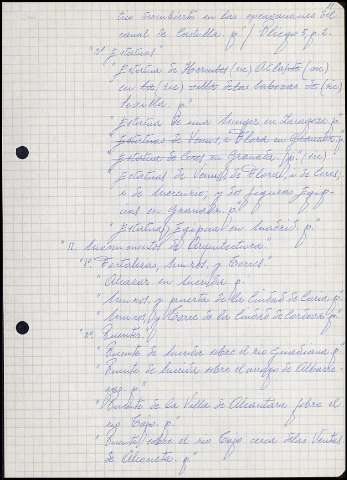 tro descubierta en las excavaciones del
canal de Castilla. p." / Pliego 5, p. 2.
"3º Estatuas"
"Estatua de Hermes (sic) Atlante (sic)
en las (sic) de las (sic)
Sevilla. p."
"Estatua de una Mujer, en Zaragoza. p."
"Estatuas de Venus, o Flora en Granada. p."
"Estatua de Ceres, en Granada. /p." (sic)
"Estatuas de Venus, o Flora, i de Ceres,
i de Mercurio, y 50 pequeñas Egip-
cias en Granada. p."
"Estatuas Egipcias en Madrid. p."
"II. Monumentos de Arquitectura"
"1º. Fortalezas, Muros, y Torres"
"Alcazar en Merida. p."
"Muros, y puerta de la Ciudad de Coria. p."
"Muros, y Torre de la Ciudad de Cordoba. p."
"2º. Puentes."
"Puente de Merida sobre el rio Guadiana. p."
"Puente de Merida sobre el arroyo de Albarre-
gas. p."
"Puente de la Villa de Alcantara sobre el
rio Tajo. p."
"Puente, sobre el rio Tajo cerca de las Ventas
de Alconeta. p."